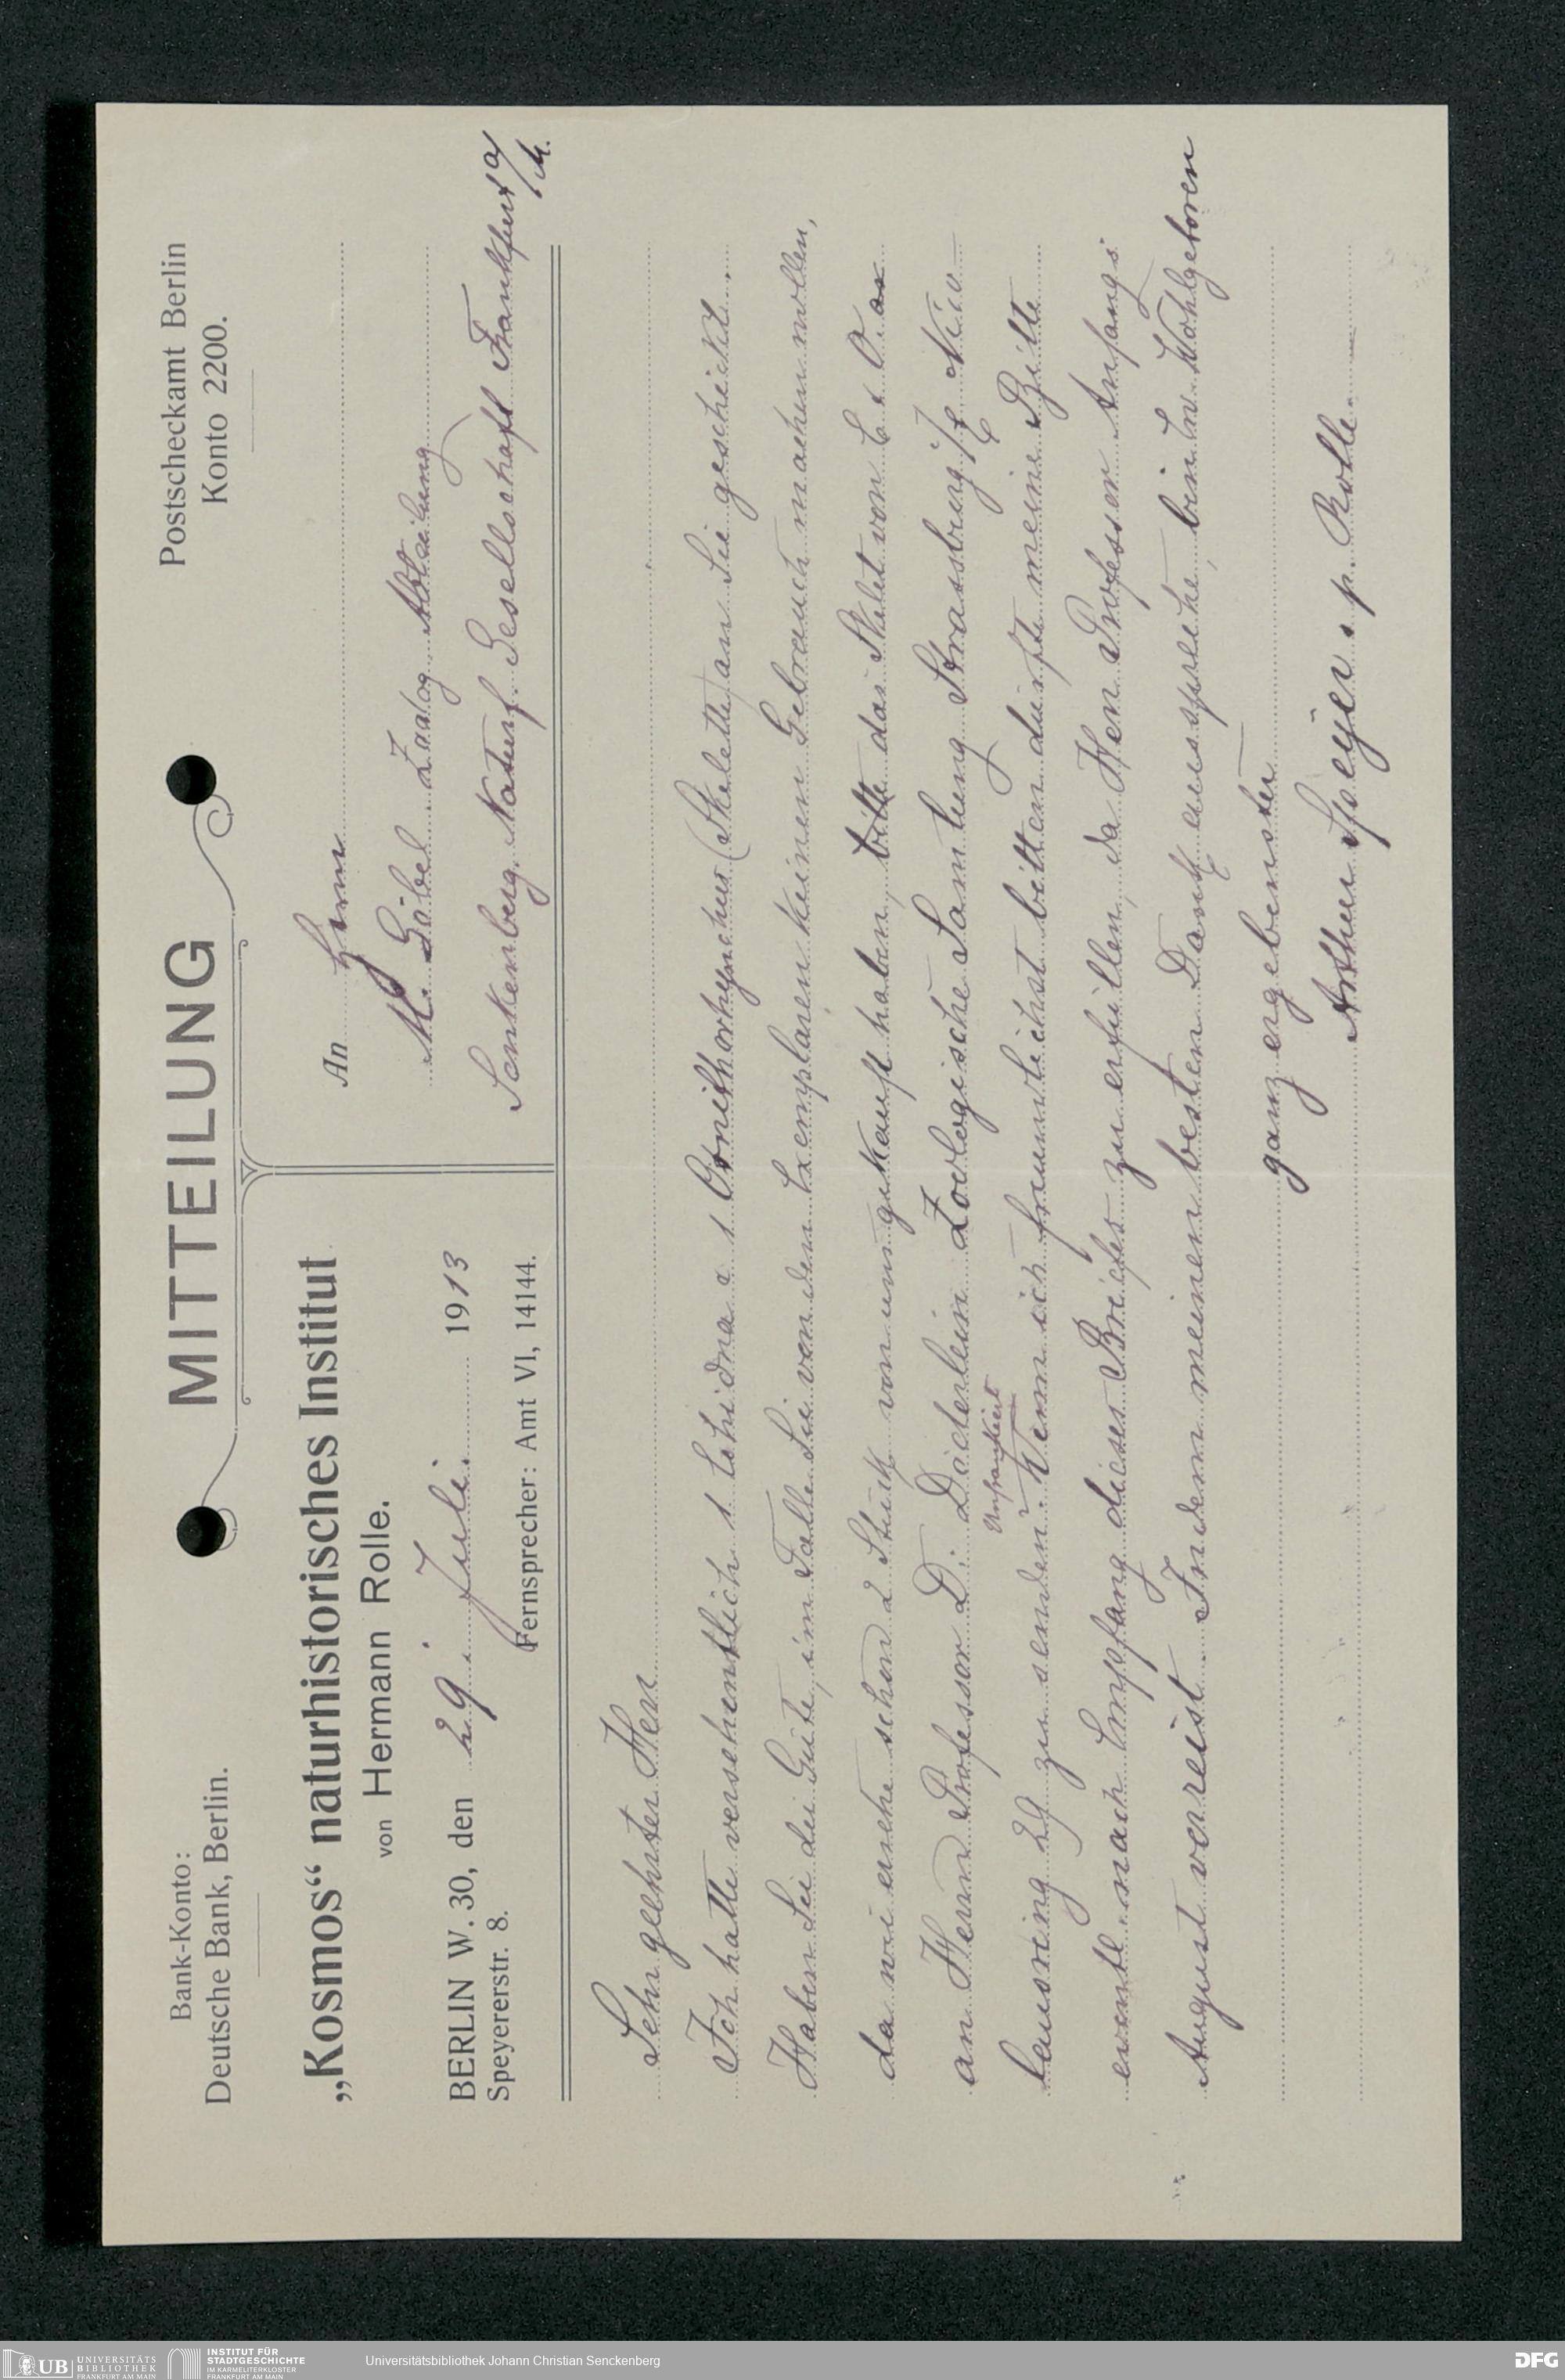 Bank-Konto:
Deutsche Bank, Berlin.
MITTEILUNG
Postscheckamt Berlin
Konto 2200.
„Kosmos“ naturhistorisches Institut
von Hermann Rolle.
BERLIN W. 30, den 29. Juli. 1913
Speyererstr. 8.
Fernsprecher: Amt VI, 14144.
An Herrn
M. Göbel Zoolog. Abteilung
Senkenberg. Naturf. Gesellschaft Frankfurt a/M.
Sehr geehrter Herr
Ich hatte versehentlich 1 Echidna & 1 Ornithorhynchus (Skelette) an Sie geschickt.
Haben Sie die Güte, im Falle Sie von den Exemplaren keinen Gebrauch machen wollen,
da wie ersehe schon 2 Stück von uns gekauft haben, bitte das Skelet von E & O. an
an Herrn Professor D. Döderlein Zoologische Samlung Strassburg i/E Nico-
lausring 29 zu senden. Wenn ich freundlichst bitten dürfte meine Bitte
Unfrankiert
eventl. nach Empfang dieses Briefes zu erfüllen, da Herr Professor Anfangs
August verreist. Indem meinen besten Dank ausspreche, bin Ew. Wohlgeboren
ganz ergebenster
Arthur Speyer. p. Rolle.
UB UNIVERSITÄTS
BIBLIOTHEK
FRANKFURT AM MAIN
INSTITUT FÜR
STADTGESCHICHTE
IM KARMELITERKLOSTER
FRANKFURT AM MAIN
Universitätsbibliothek Johann Christian Senckenberg
DFG